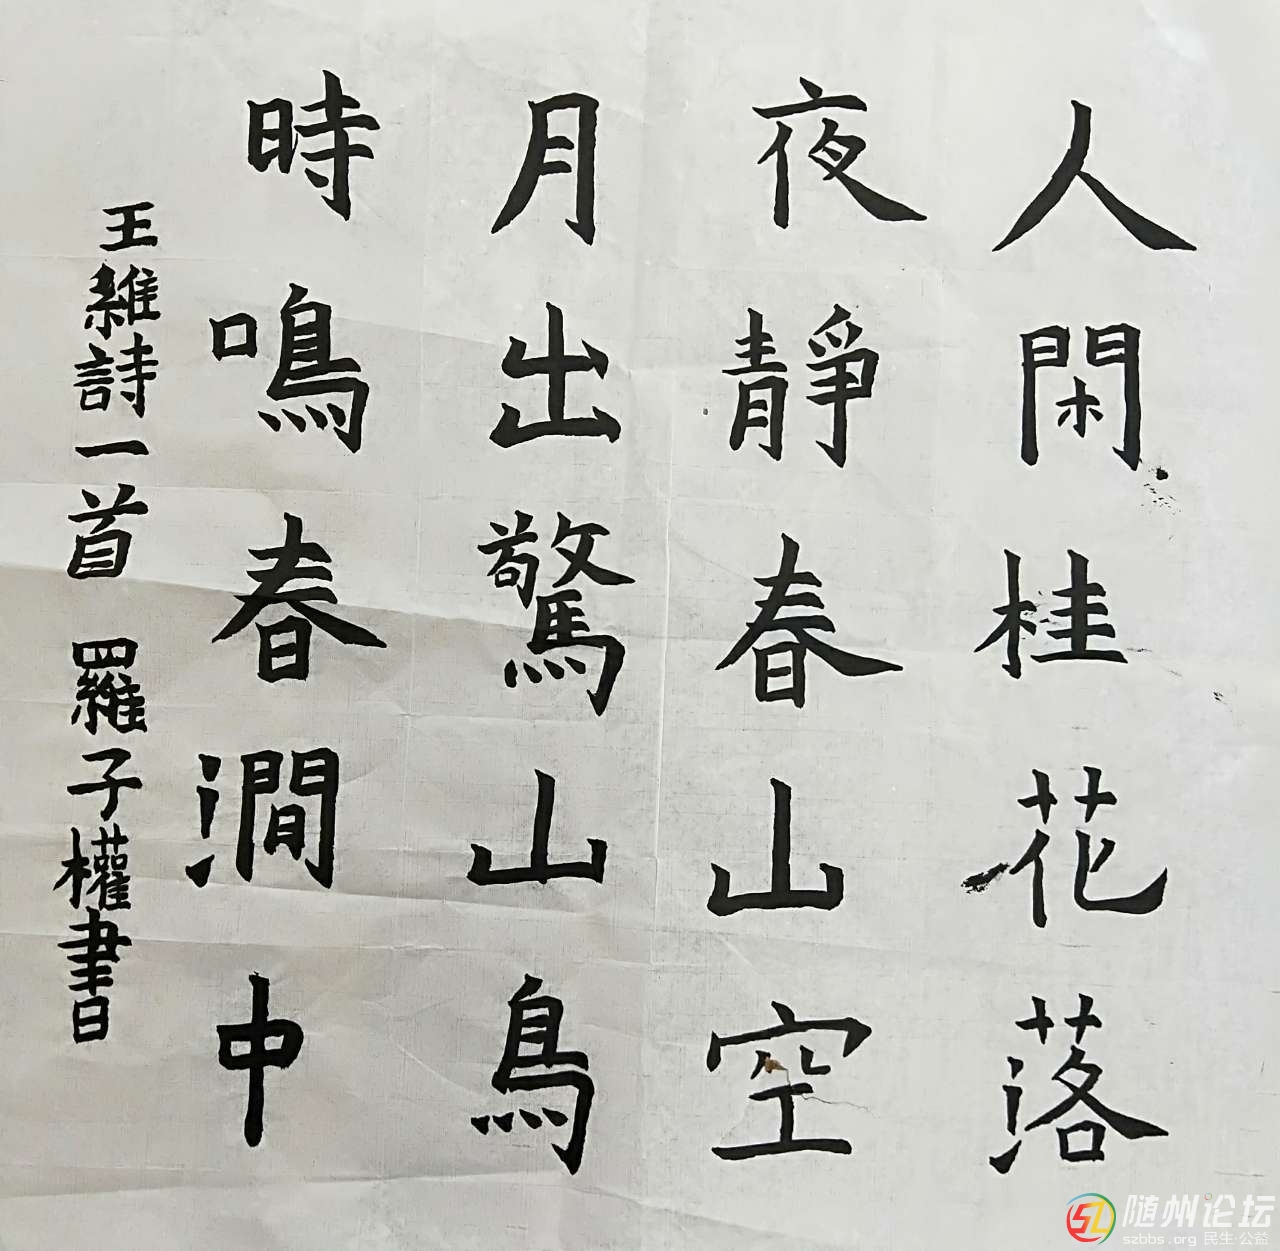 人閑桂花落
夜靜春山空
月出驚山鳥
時鳴春澗中
王維詩一首 羅子權書
随州论坛
szbbs.org 民生·公益